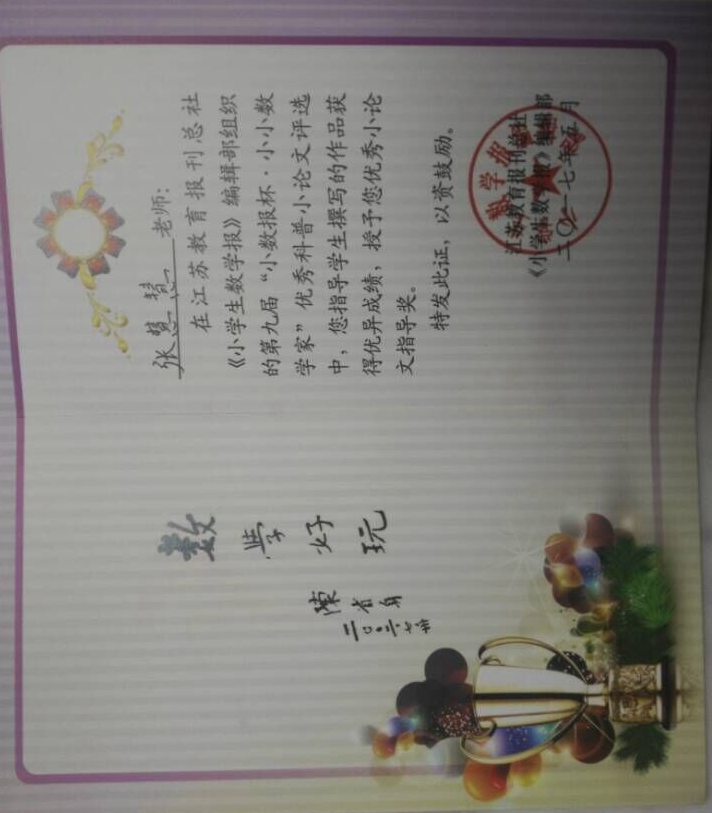 数学好玩
陳省身
张慧慧老师：
在江苏教育报刊总社
《小学生数学报》编辑部组织
的第九届“小数报杯·小小数
学家”优秀科普小论文评选
中，您指导学生撰写的作品获
得优异成绩，授予您优秀小论
文指导奖。
特发此证，以资鼓励。
江苏教育报刊总社
《小学生数学报》编辑部
二〇一七年五月